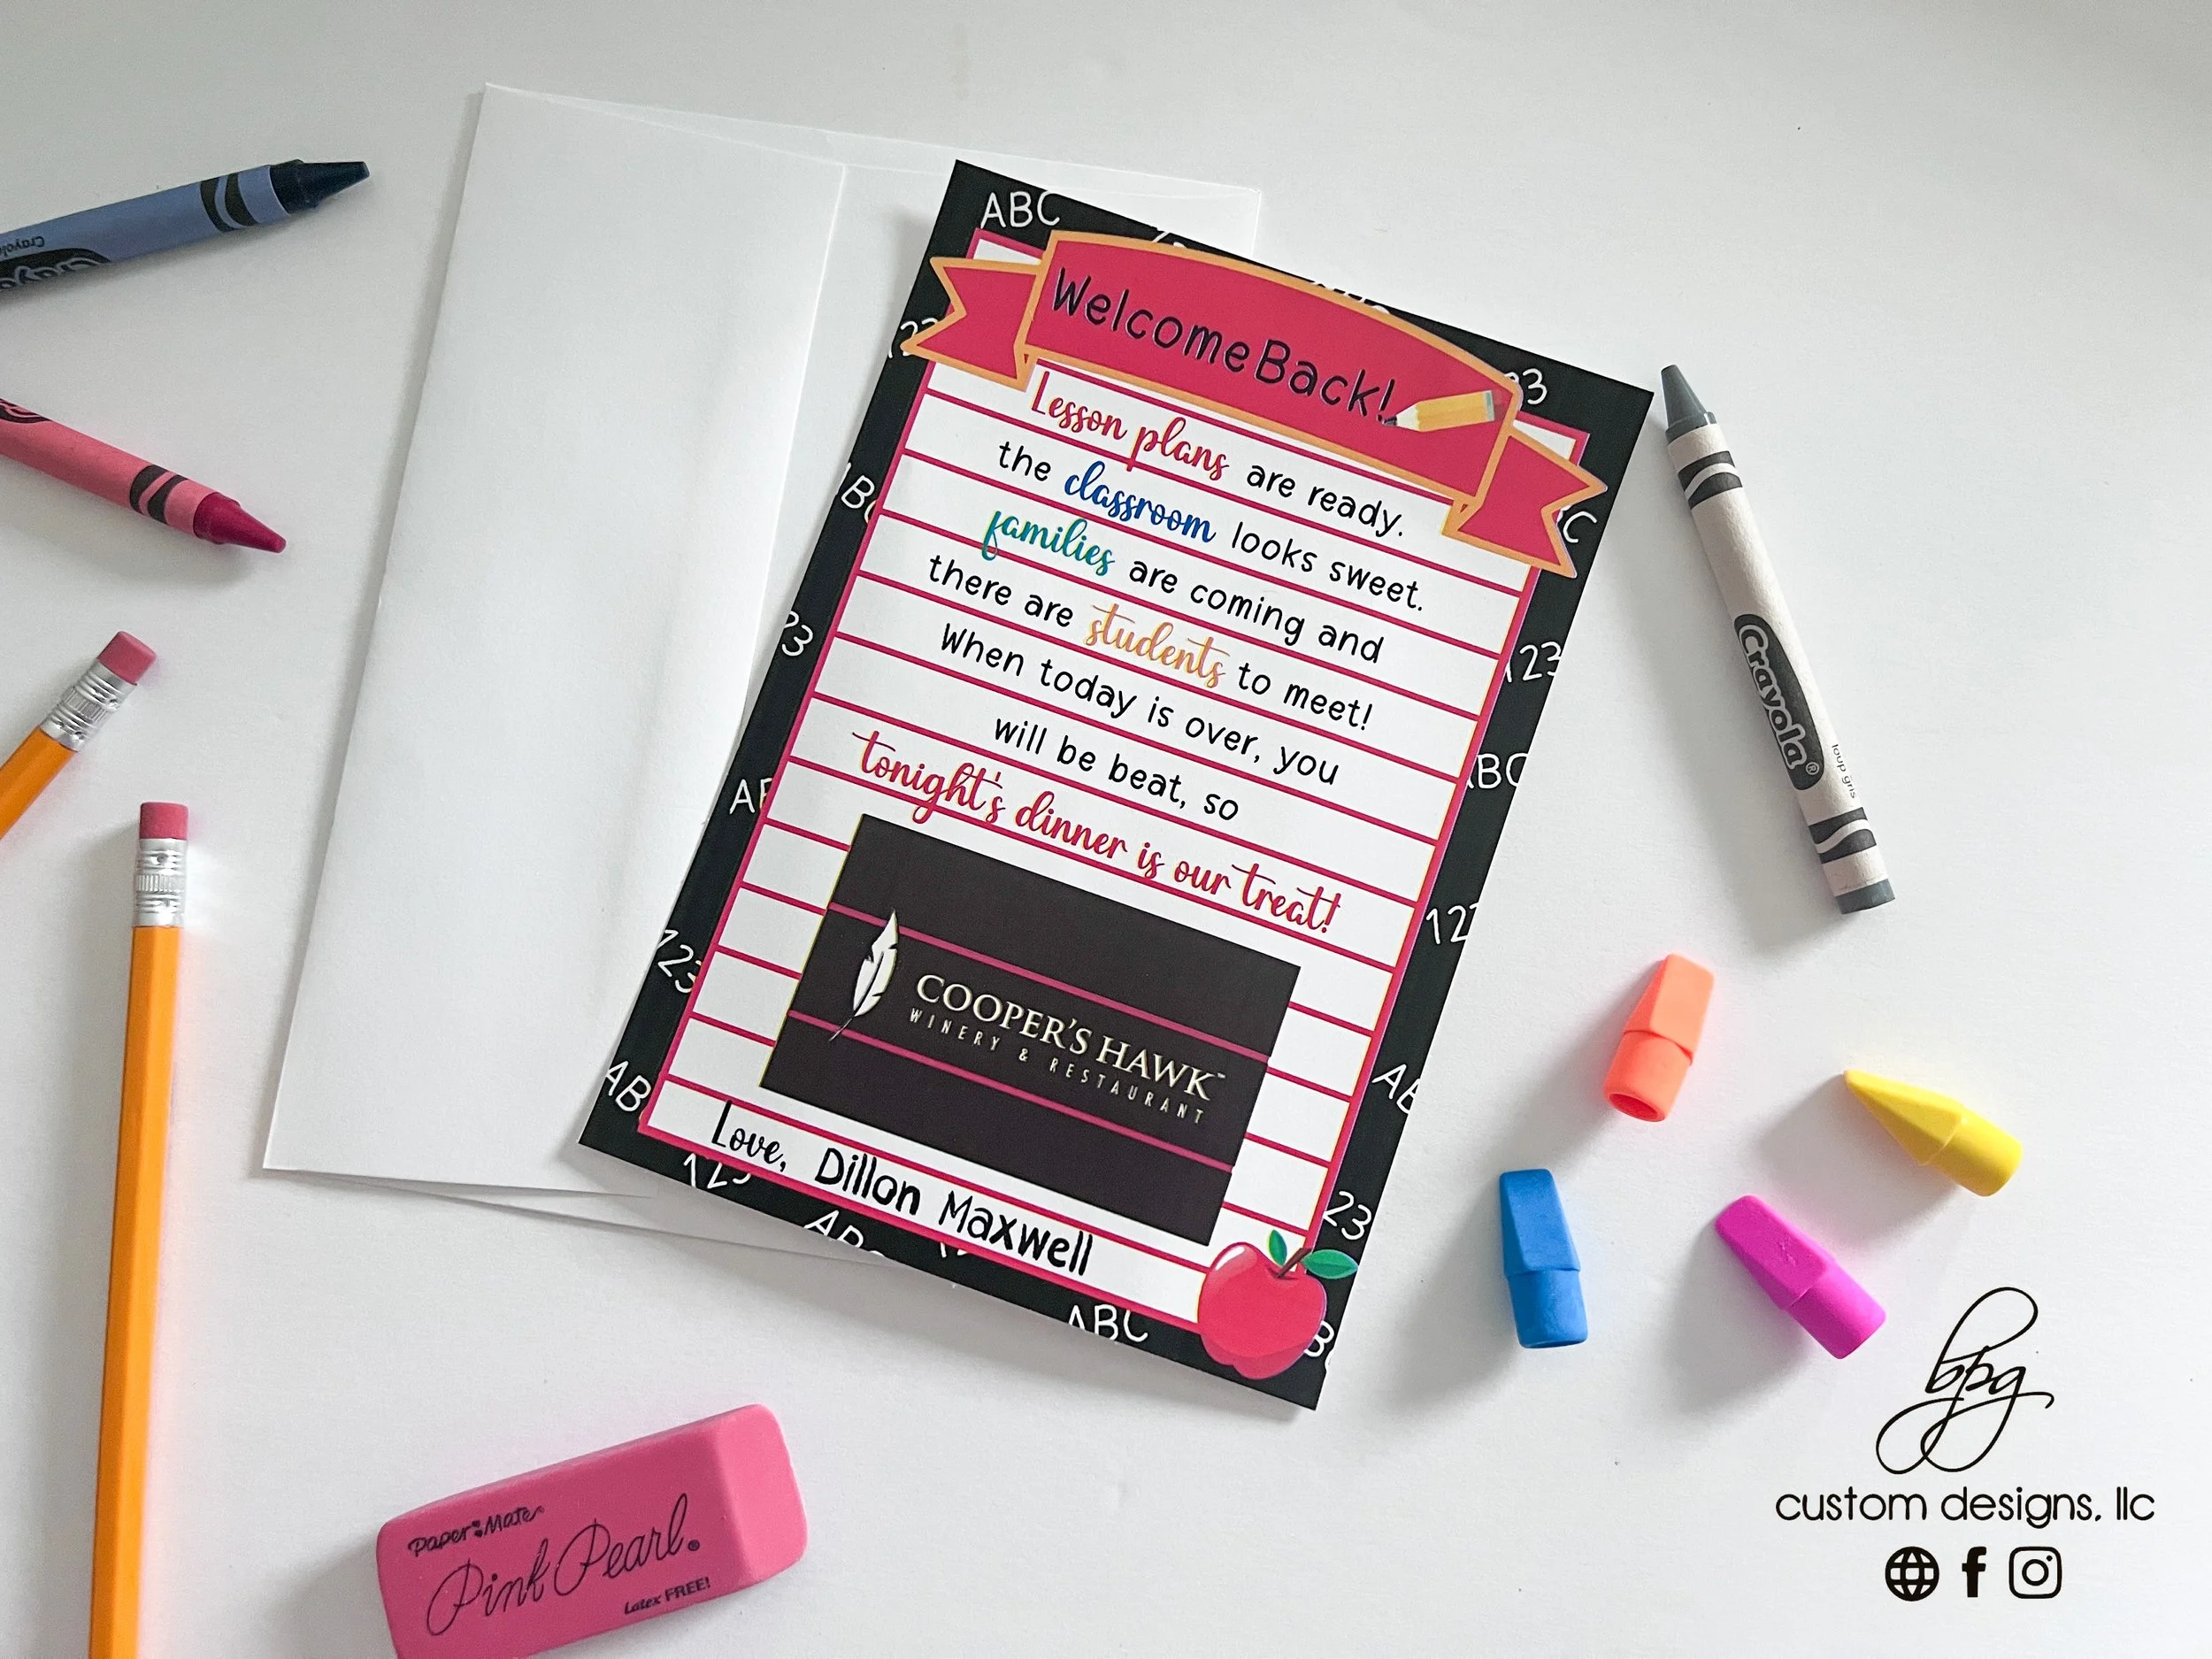 ABC
WelcomeBack!
Lesson plans are ready.
the classroom looks sweet.
families are coming and
there are students to meet!
When today is over, you
will be beat, so
tonight's dinner is our treat!
COOPER'S HAWK™
WINERY & RESTAURANT
Love, Dillon Maxwell
123
ABC
123
ABC
Crayola
Crayola
Crayola®
loup gris
Paper:Mate
Pink Pearl®
Latex FREE!
bpg
custom designs, llc
f